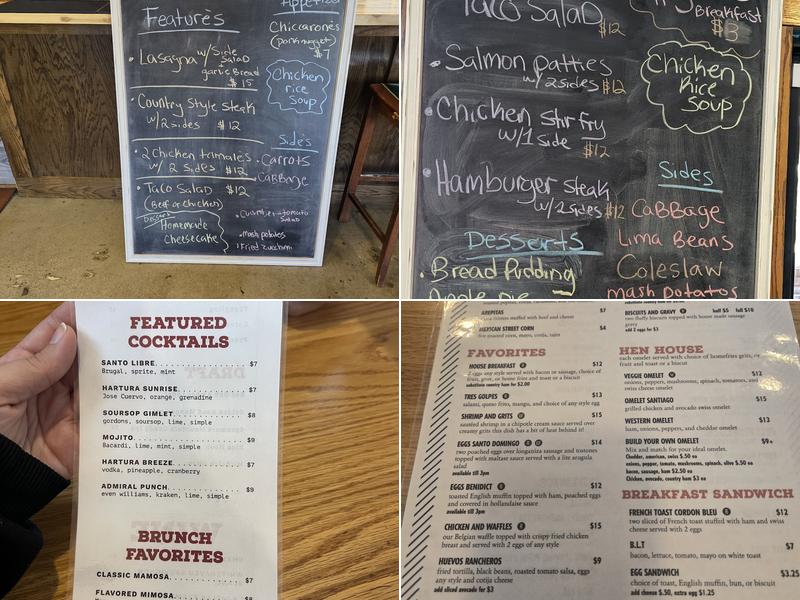 Features
Lasagna w/ Side
Salad
+
garlic Bread
$15
Country Style Steak
w/ 2 sides $12
2 Chicken tamales
w/ 2 sides $12
Taco Salad $12
(Beef or Chicken)
Dessert
Homemade
Cheesecake
Chiccarones
(pork nugget)
$7
Chicken
rice
Soup
Sides
Carrots
Cabbage
Cucumber + tomato
Salad
Mash potatoes
Fried Zucchini
Taco Salad
$12
Salmon patties
w/ 2 sides $12
Chicken stir fry
w/ 1 side
$12
Hamburger steak
w/ 2 sides $12
Desserts
Bread Pudding
Apple pie
Breakfast
$3
Chicken
Rice
Soup
Sides
Cabbage
Lima Beans
Coleslaw
mash potatoes
FEATURED
COCKTAILS
SANTO LIBRE $7
Brugal, sprite, mint
HARTURA SUNRISE $7
Jose Cuervo, orange, grenadine
SOURSOP GIMLET $8
gordons, soursop, lime, simple
MOJITO $9
Bacardi, lime, mint, simple
HARTURA BREEZE $7
vodka, pineapple, cranberry
ADMIRAL PUNCH $9
even williams, kraken, lime, simple
BRUNCH
FAVORITES
CLASSIC MAMOSA $7
FLAVORED MIMOSA $8
AREPITAS $7
stuffed with beef and cheese
MEXICAN STREET CORN $4
fire roasted corn, mayo, cotija, tajin
FAVORITES
HOUSE BREAKFAST $12
2 eggs any style served with bacon or sausage, choice of
fruit, grits, or home fries and toast or a biscuit
substitute country ham for $2.00
TRES GOLPES $13
salami, queso frito, mangu, and choice of any style egg
SHRIMP AND GRITS $15
sautéed shrimp in a chipotle cream sauce served over
creamy grits this dish has a bit of heat behind it!
EGGS SANTO DOMINGO $14
two poached eggs over longaniza sausage and tostones
topped with maltase sauce served with a lite arugula
salad
available till 3pm
EGGS BENEDICT $12
toasted English muffin topped with ham, poached eggs
and covered in hollandaise sauce
available till 3pm
CHICKEN AND WAFFLES $15
our Belgian waffle topped with crispy fried chicken
breast and served with 2 eggs of any style
HUEVOS RANCHEROS $9
fried tortilla, black beans, roasted tomato salsa, eggs
any style and cotija cheese
add sliced avocado for $3
BISCUITS AND GRAVY half $5 full $10
two fluffy biscuits topped with house made sausage
gravy
add 2 eggs for $3
HEN HOUSE
each omelet served with choice of homefries grits, or
fruit and toast or a biscuit
VEGGIE OMELET $12
onions, peppers, mushrooms, spinach, tomatoes, and
swiss cheese
OMELET SANTIAGO $15
grilled chicken and avocado swiss omelet
WESTERN OMELET $13
ham, onions, peppers, and cheddar omelet
BUILD YOUR OWN OMELET $9+
Mix and match for your ideal omelet.
Cheddar, american, swiss $.50 ea
onions, pepper, tomato, mushrooms, spinach, olive $.50 ea
bacon, sausage, ham $2.50 ea
Chicken, avocado, country ham $3 ea
BREAKFAST SANDWICH
FRENCH TOAST CORDON BLEU $12
two sliced of French toast stuffed with ham and swiss
cheese served with 2 eggs
B.L.T $7
bacon, lettuce, tomato, mayo on white toast
EGG SANDWICH $3.25
choice of toast, English muffin, bun, or biscuit
add cheese $.50, extra egg $1.25